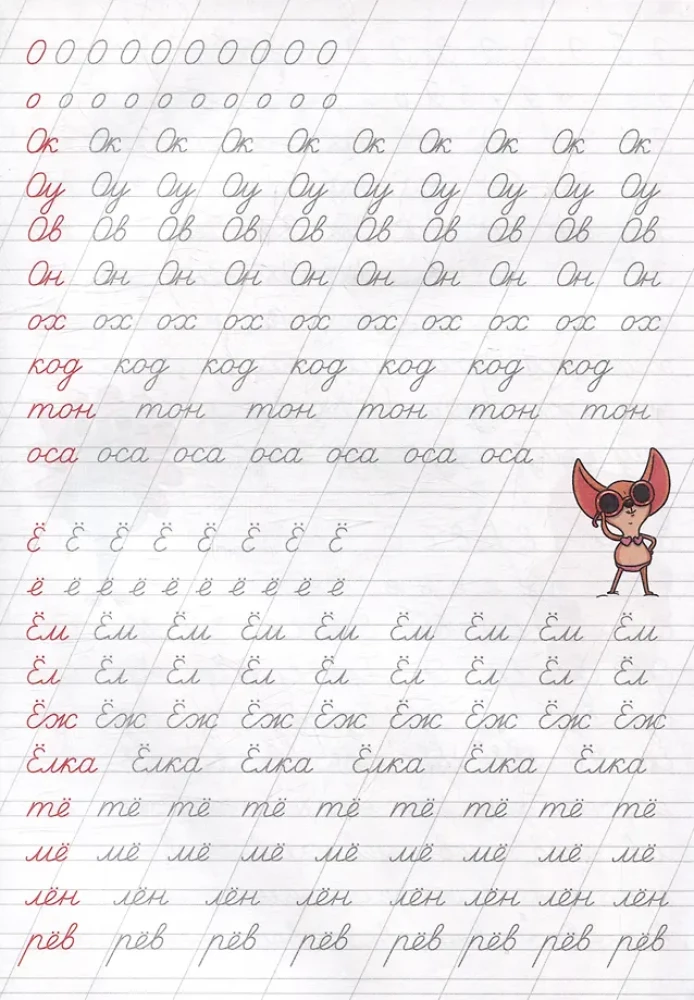 О О О О О О О О О О
о о о о о о о о о о
Ок Ок Ок Ок Ок Ок Ок Ок Ок Ок
Оу Оу Оу Оу Оу Оу Оу Оу Оу Оу
Ов Ов Ов Ов Ов Ов Ов Ов Ов Ов
Он Он Он Он Он Он Он Он Он Он
ох ох ох ох ох ох ох ох ох ох
код код код код код код код
тон тон тон тон тон тон
оса оса оса оса оса оса оса
Ё Ё Ё Ё Ё Ё Ё Ё
ё ё ё ё ё ё ё ё ё ё
Ём Ём Ём Ём Ём Ём Ём Ём Ём
Ёл Ёл Ёл Ёл Ёл Ёл Ёл Ёл Ёл
Ёж Ёж Ёж Ёж Ёж Ёж Ёж Ёж Ёж
Ёлка Ёлка Ёлка Ёлка Ёлка Ёлка
тё тё тё тё тё тё тё тё тё
мё мё мё мё мё мё мё мё мё
лён лён лён лён лён лён лён лён
рёв рёв рёв рёв рёв рёв рёв рёв